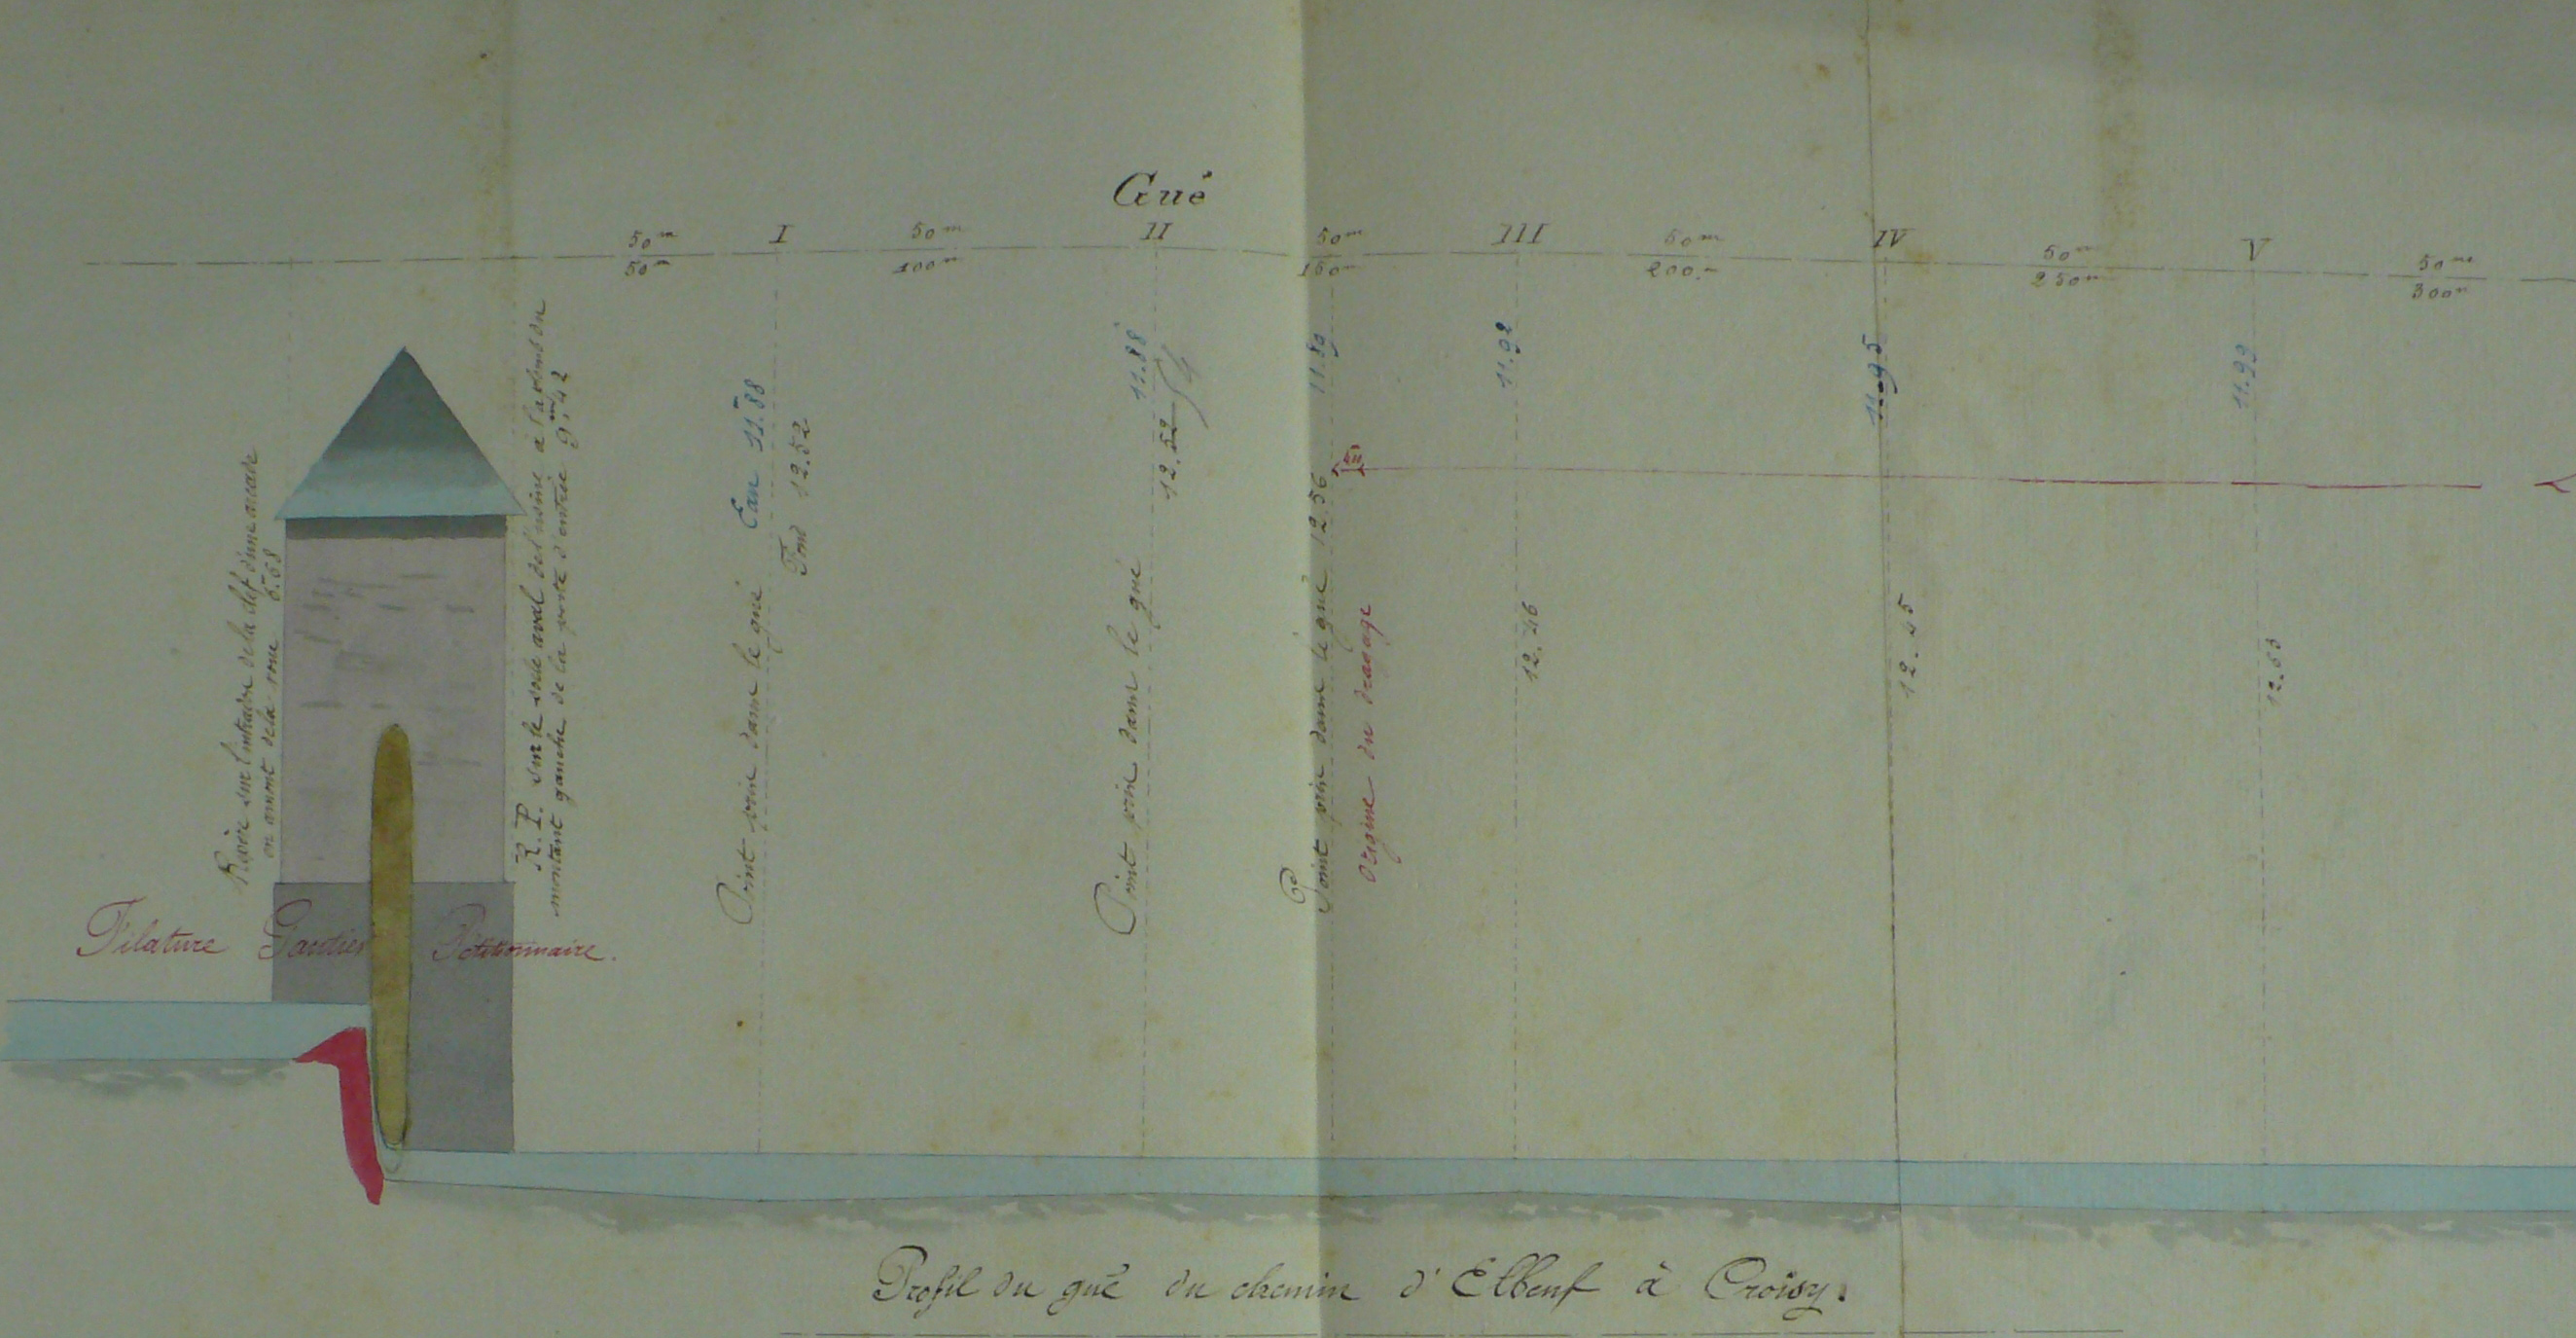 Gué
50m I 50m II 50m III 50m IV 50m V 50m
50m 100m 150m 200m 250m 300m
Repère sur l'intrados de la clef d'une arcade
en amont de la roue 6.68
R.P. sur le socle aval de l'usine à l'aplomb du
montant gauche de la porte d'entrée 9m,42
Point pris dans le gué Eau 11.88
Fond 12.52
Point pris dans le gué 11.88
12.52
54
Point pris dans le gué 12.56 11.89
Origine du dragage
11.92
12.46
11.95
12.45
11.99
12.63
Filature Gautier Pétitionnaire.
Profil du gué du chemin d'Elbeuf à Croisy.